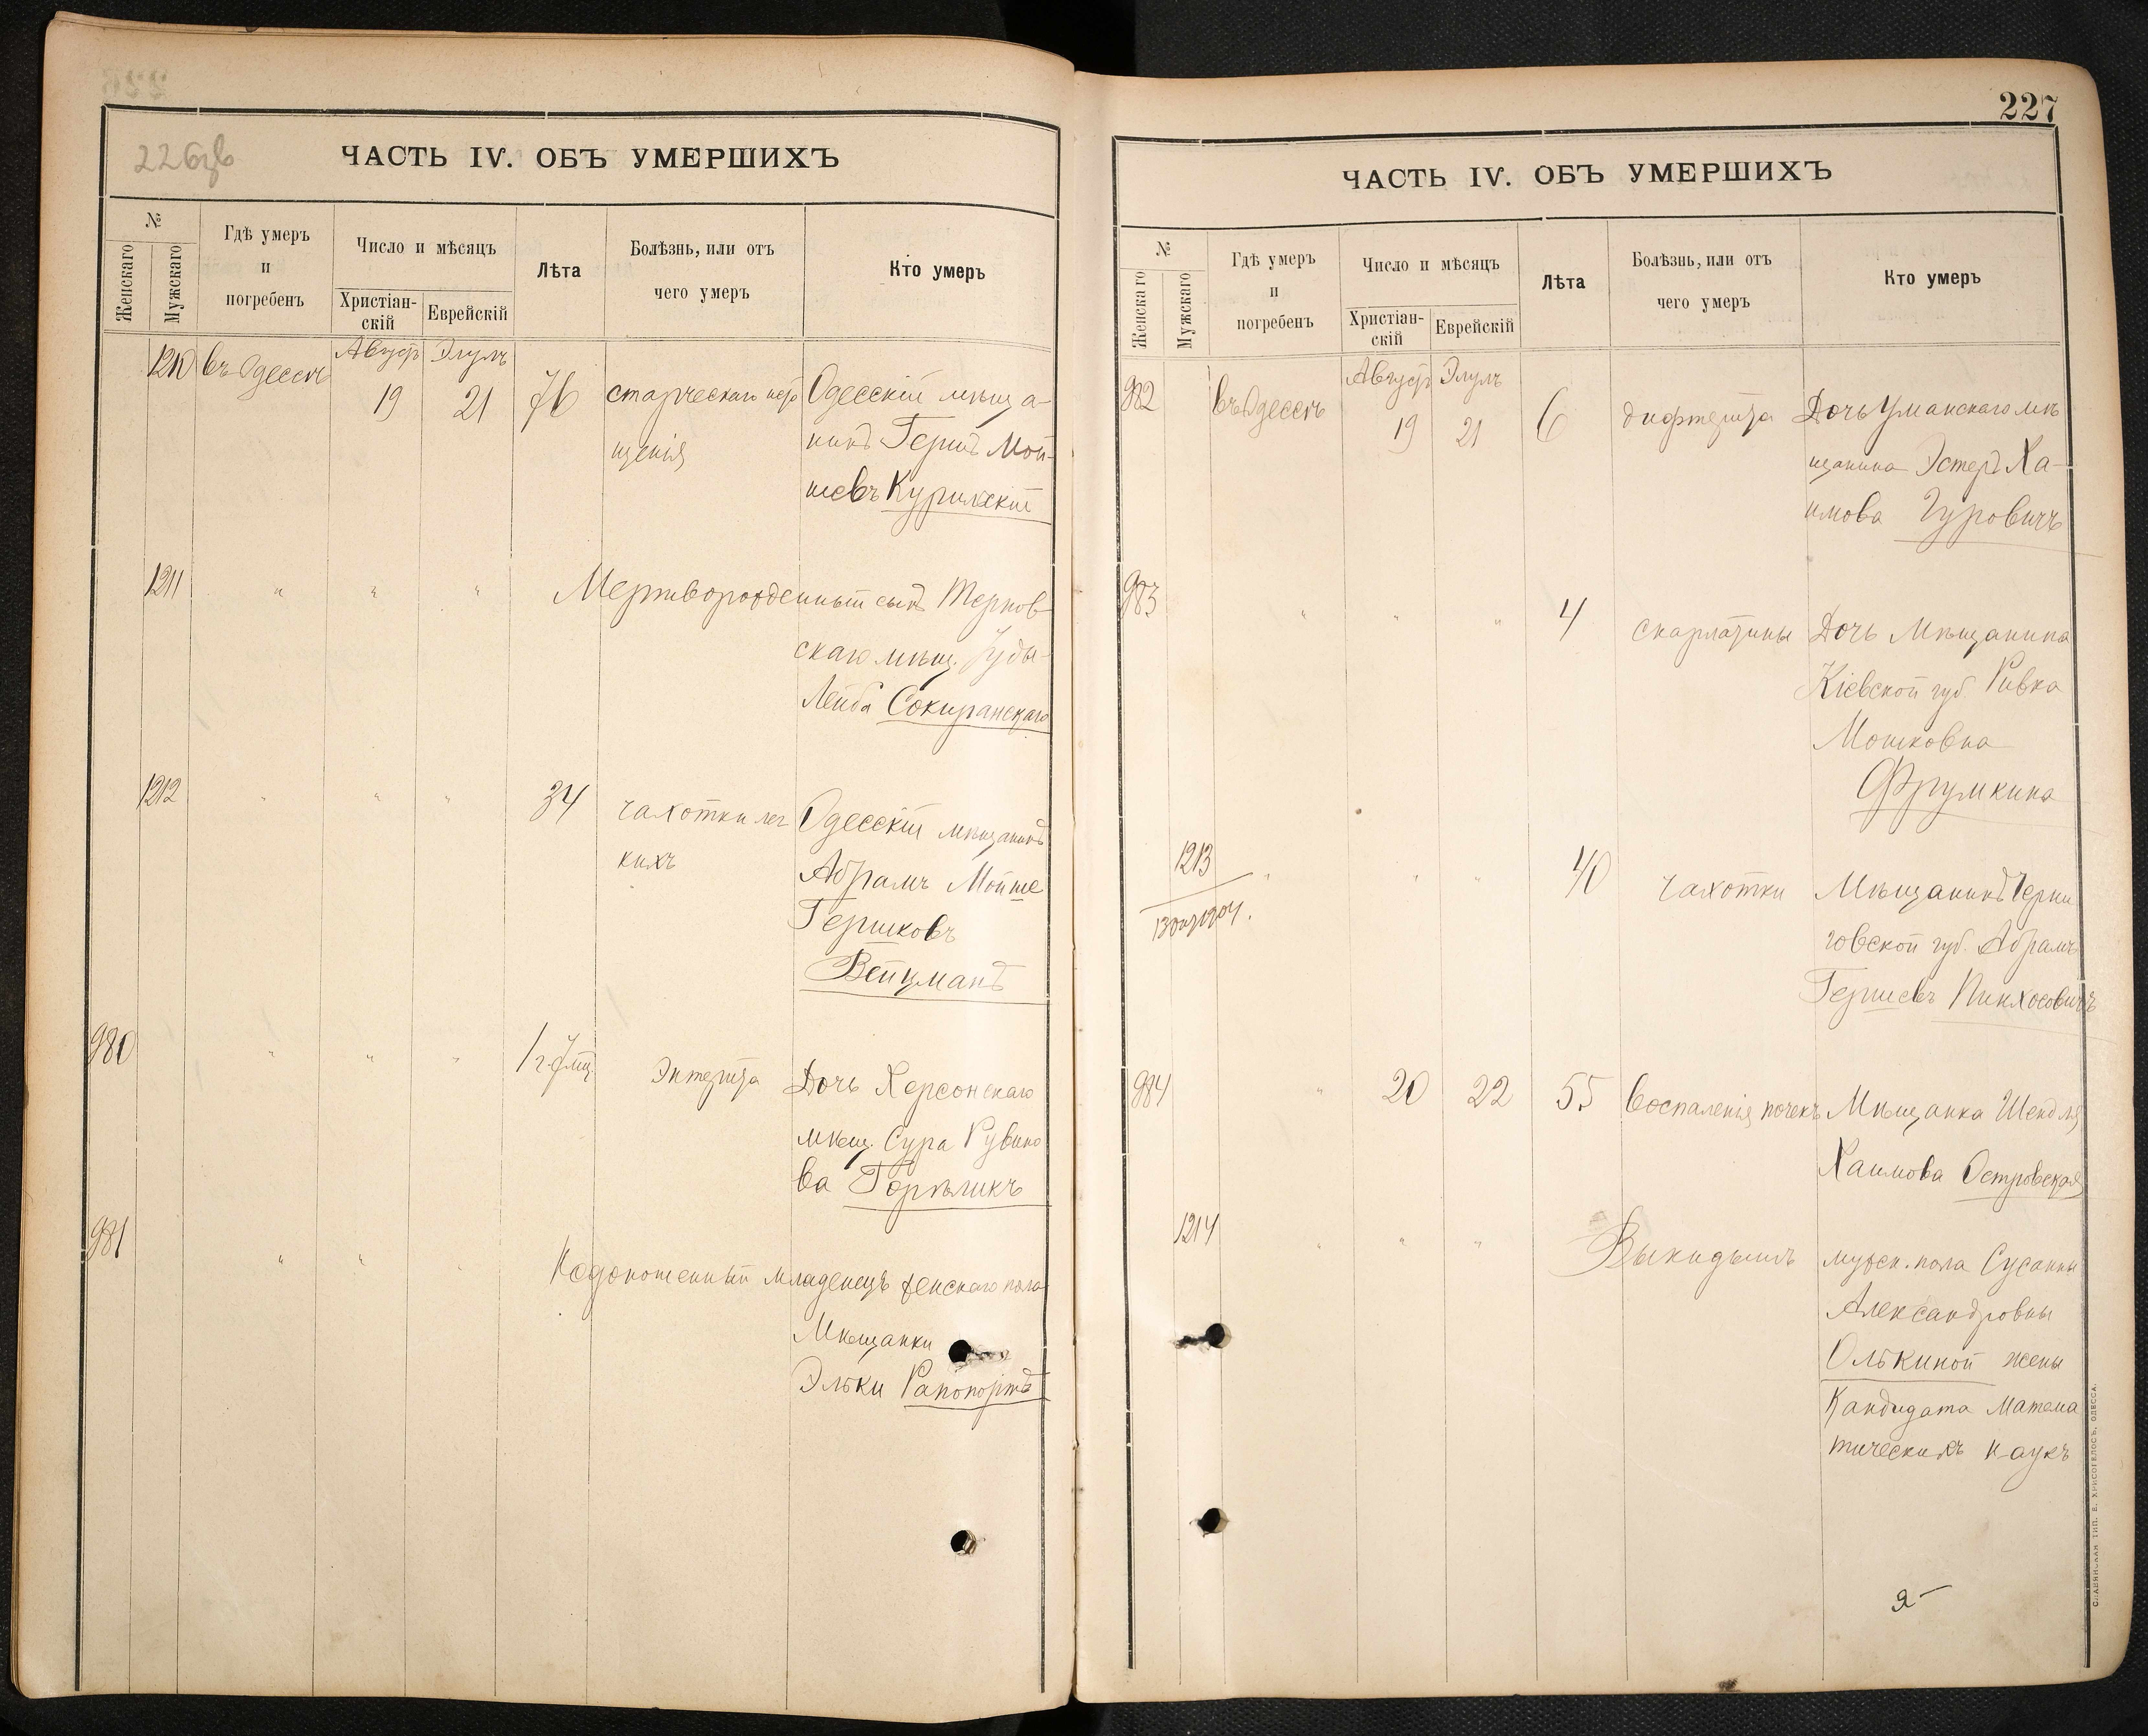 226об
ЧАСТЬ IV. ОБЪ УМЕРШИХЪ
№
Женскаго
Мужскаго
Гдѣ умеръ
и
погребенъ
Число и мѣсяцъ
Христіан-
скій
Еврейскій
Лѣта
Болѣзнь, или отъ
чего умеръ
Кто умеръ
1210 въ Одессѣ Август Элулъ
19 21 76 старческаго исто Одесскій мѣща-
щенія нинъ Гершъ Мой-
шевъ Курильскій
1211 " " " Мертворожденный сынъ Тернов-
скаго мѣщ. Іуды-
Лейба Сокиранскаго
1212 " " " 34 чахотки лег Одесскій мѣщанинъ
кихъ Абрамъ Мойше
Гершковъ
Вейцманъ
980 " " " 1 г. 7 мц. Энтерита Дочь Херсонскаго
мѣщ. Сура Рувино
ва Горѣликъ
981 " " " Недоношенный младенецъ женскаго пола
Мѣщанки
Эльки Рапопортъ
227
ЧАСТЬ IV. ОБЪ УМЕРШИХЪ
№
Женскаго
Мужскаго
Гдѣ умеръ
и
погребенъ
Число и мѣсяцъ
Христіан-
скій
Еврейскій
Лѣта
Болѣзнь, или отъ
чего умеръ
Кто умеръ
982 въ Одессѣ Август Элулъ
19 21 6 дифтерита Дочь Уманскаго мѣ
щанина Эстеръ Ха-
имова Гуровичъ
983 " " " 4 скарлатины Дочь Мѣщанина
Кіевской губ Ривка
Мошковна
Фрумкина
1213 " " " 40 Чахотки Мѣщанинъ Черни
говской губ. Абрамъ
Гершевъ Пинхосовичъ
984 " 20 22 55 Воспаленія почекъ Мѣщанка Шендля
Хаимова Островская
1214 " " " Выкидышъ мужск. пола Сусанны
Александровны
Олькиной жены
Кандидата Матема
тическихъ наукъ
СЛАВЯНСКАЯ ТИП. Е. ХРИСОГЕЛОСЪ, ОДЕССА.